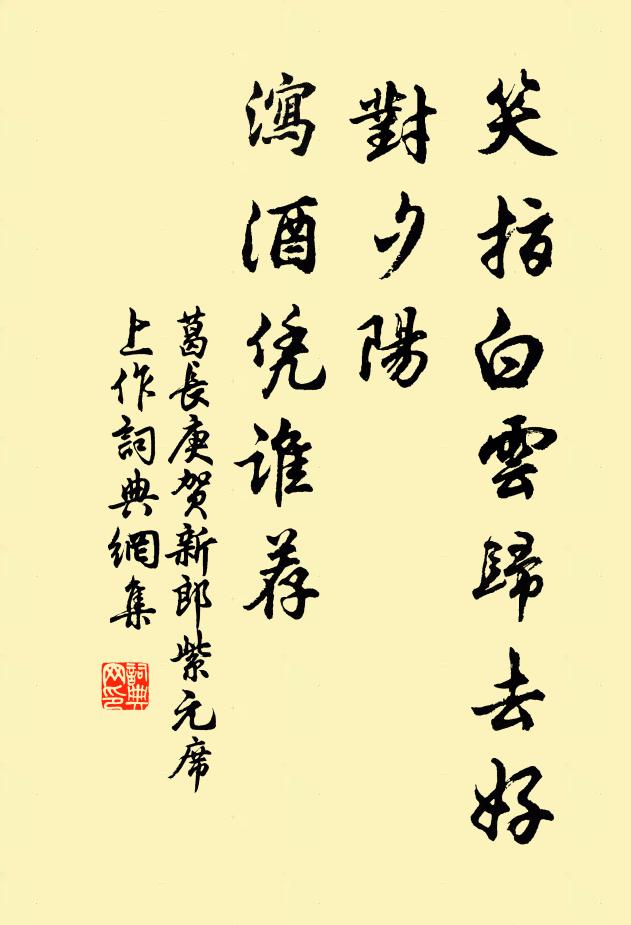 笑指白雲歸去好
對夕陽
瀉酒凭谁荐
葛長庚贺新郎紫元席
上作詞典網集
詞典网印